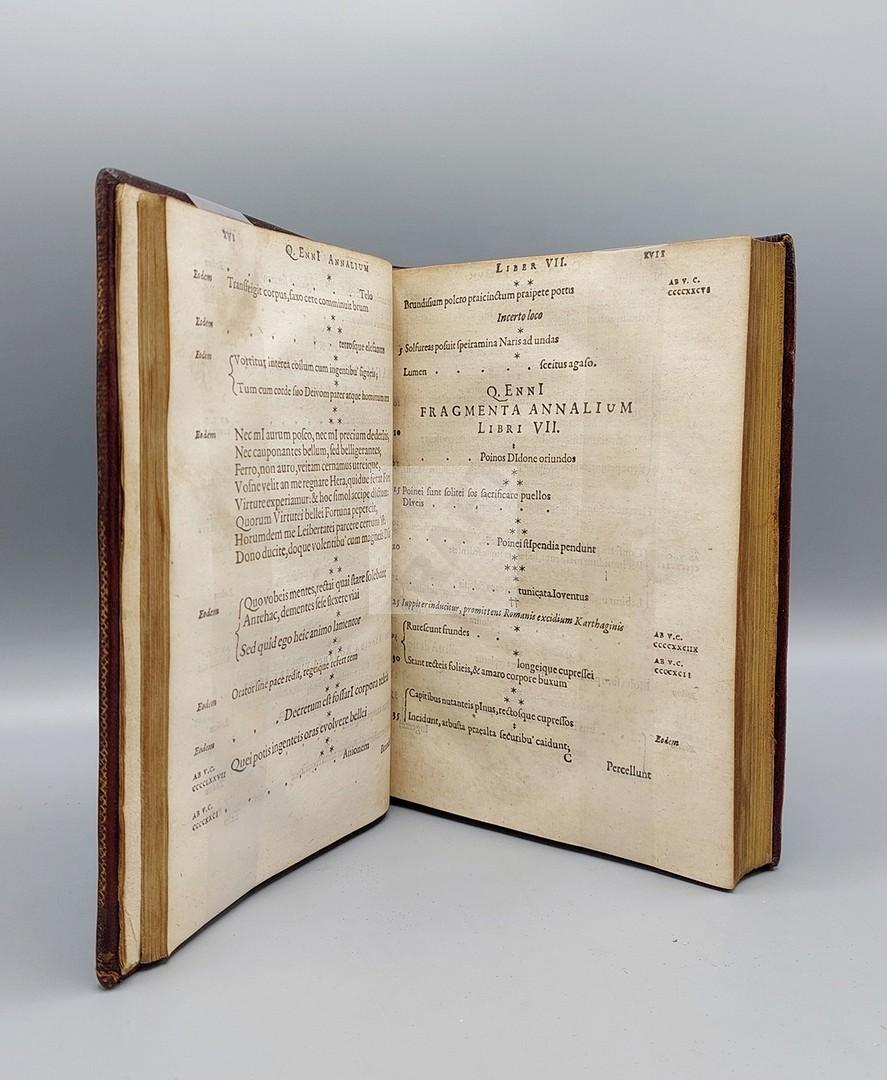 XVI
Q. EnnI Annalium
Eodem
. . . . . . Telo
Transfeigit corpus, saxo cete comminuit brum
*
Eodem
. . . . . . tetrosque elefantos
* *
Eodem
Vortitur interea coilum cum ingentibu' signeis;
*
Tum cum corde suo Deivom pater atque hominum
*
* *
Eodem
Nec mI aurum posco, nec mI precium dederitis,
Nec cauponantes bellum, sed belligerantes,
Ferro, non auro, veitam cernamus utreique,
Vosne velit an me regnare Hera, quidue ferat
Virtute experiamur: & hoc simol accipe dictum
Quorum Virtutei bellei Fortuna pepercit,
Horumdem me Leibertatei parcere certum 'st.
Dono ducite, doque volentibu' cum magneis
* *
*
Eodem
Quo vobeis mentes, rectai quai stare solebant
Antehac, dementes sese flexere viai
*
Sed quid ego heic animo lamentor
* *
Eodem
Orator sine pace redit, regeique refert rem
* *
. . . Decretum est fossarI corpora
*
Eodem
Quei potis ingenteis oras evolvere bellei
AB V. C.
CCCCLXXVII
* *
*
. . . . . . Anionem
AB V. C.
Liber VII.
XVII
* *
AB V. C.
Brundisium polcro praicinctum praipete portu
*
Incerto loco
5 Solfureas posuit speiramina Naris ad undas
*
Lumen . . . . . sceitus agaso.
Q. EnnI
FRAGMENTA ANNALIUM
LIBRI VII.
10
. . . . . Poinos DIdone oriundos
*
* *
15 Poinei sunt solitei sos sacrificare puellos
DIveis . . . . . .
*
* *
20
. . . . . Poinei stIpendia pendunt
* *
***
. . . . . . tunicata Ioventus
25 Iuppiter inducitur, promittens Romanis excidium Karthaginis
Rutescunt frundes . . .
AB V. C.
CCCCXXCIIX
*
. . . . . longeique cupressei
AB V. C.
30 Stant recteis folieis, & amaro corpore buxum
*
* *
Capitibus nutanteis pInus, rectosque cupressos
35 Incidunt, arbusta praealta securibu' caidunt;
Eodem
C
Percellunt